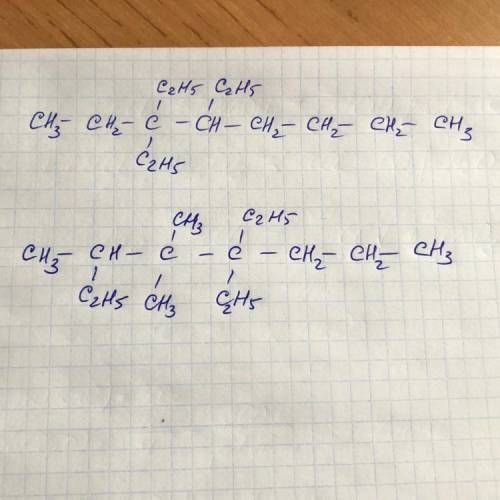 C2H5 C2H5
CH3- CH2- C - CH - CH2 - CH2 - CH2 - CH3
C2H5
CH3 C2H5
CH3 - CH - C - C - CH2 - CH2 - CH3
C2H5 CH3 C2H5